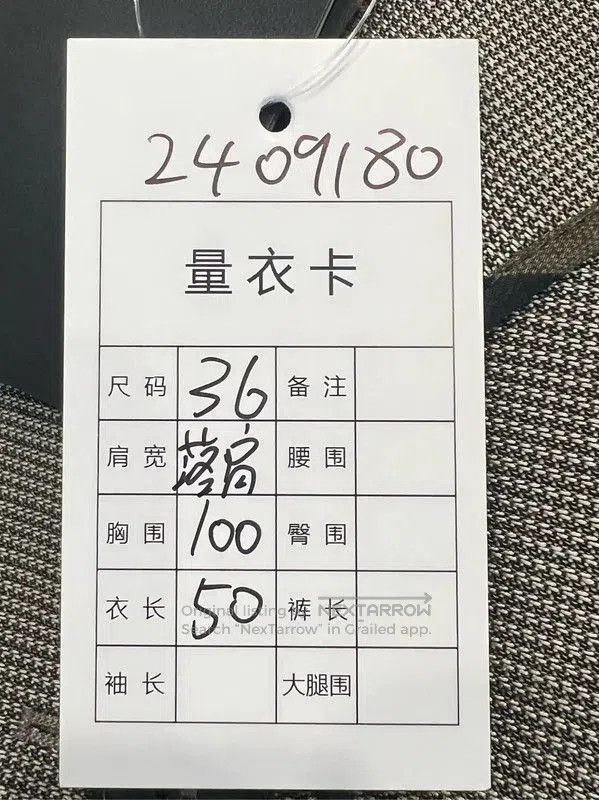 2409180
量衣卡
尺码 36 备注
肩宽 落肩 腰围
胸围 100 臀围
衣长 50 裤长
Original listing by NEXTARROW
Search "NexTarrow" in Grailed app.
袖长 大腿围